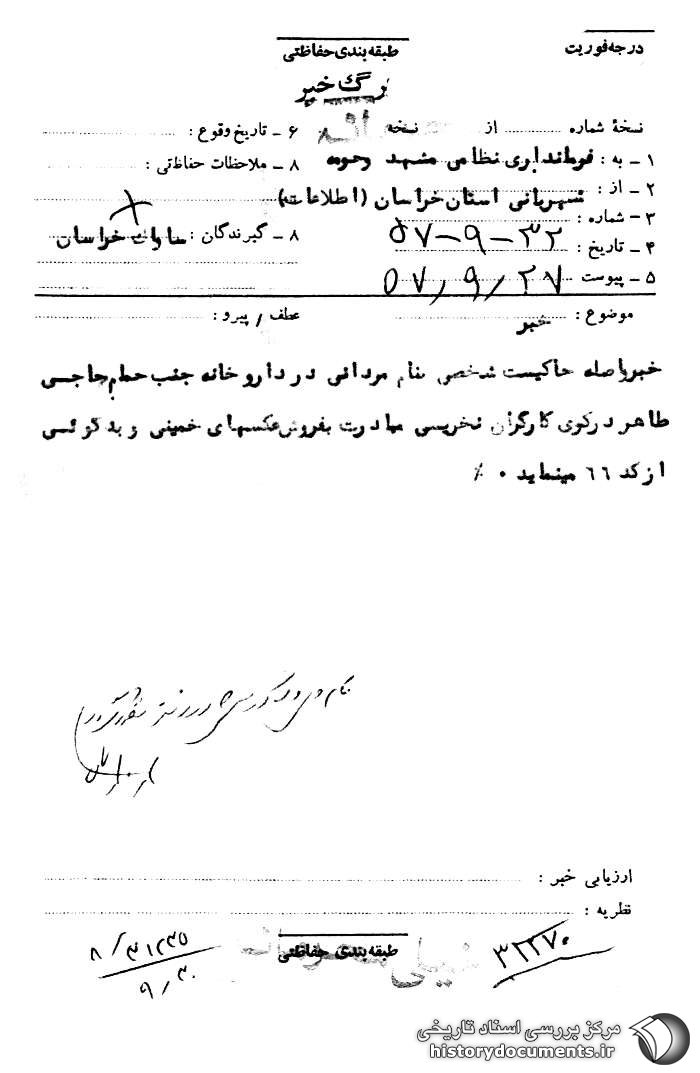 درجه فوریت
طبقه بندی حفاظتی
برگ خبر
نسخهٔ شماره از نسخه
۶ ـ تاریخ وقوع :
۱ ـ به : فرمانداری نظامی مشهد و حومه
۸ ـ ملاحظات حفاظتی :
۲ ـ از : شهربانی استان خراسان (اطلاعات)
۳ ـ شماره :
۸ ـ گیرندگان : ساواک خراسان
۴ ـ تاریخ : ۵۷-۹-۳۲
۵ ـ پیوست ۵۷/۹/۲۷
موضوع : خبر
عطف / پیرو :
خبرواصله حاکیست شخصی بنام مردانی در داروخانه جنب حمام حاجی
طاهر درکوی کارگران نخریسی مبادرت بفروش عکسهای خمینی و بدگوئی
از کد ٦٦ مینماید ۰ ٪
ارزیابی خبر :
نظریه :
طبقه بندی حفاظتی
خیلی محرمانه
۳۲۲۷۰
۸/۳۱۲۳۵
۹/۳۰
مرکز بررسی اسناد تاریخی
historydocuments.ir